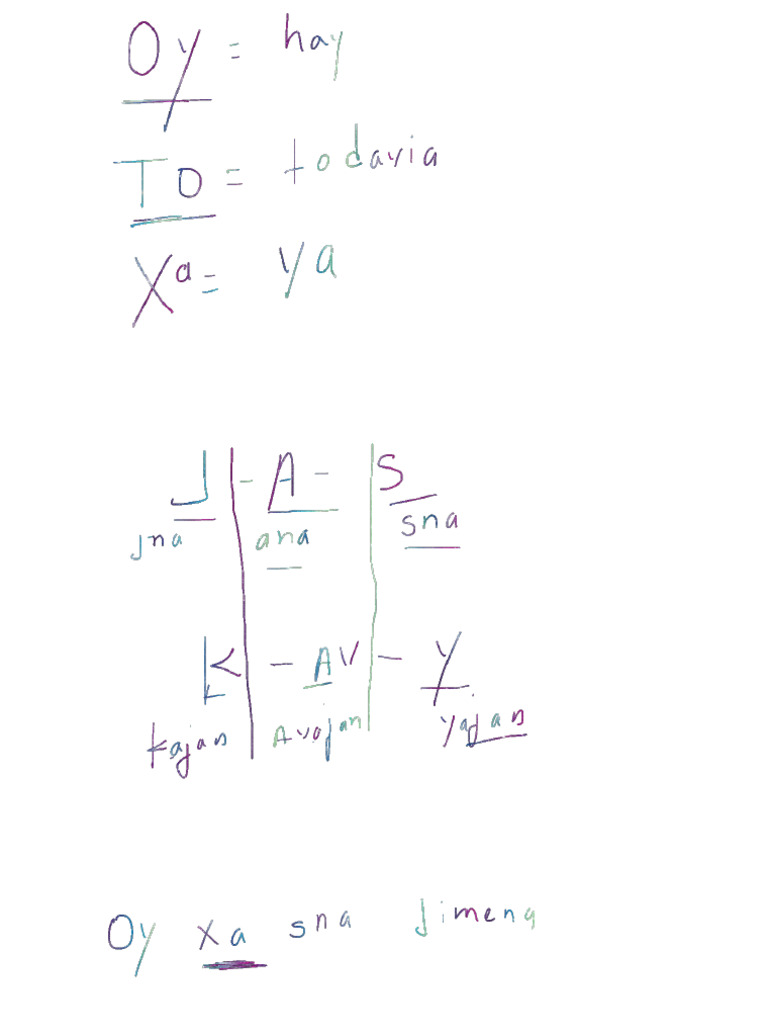 Oy = hay
To = todavia
Xa = ya
J - A - S
jna ana sna
K - AV - Y
kajan Avajan yajan
Oy xa sna Jimena